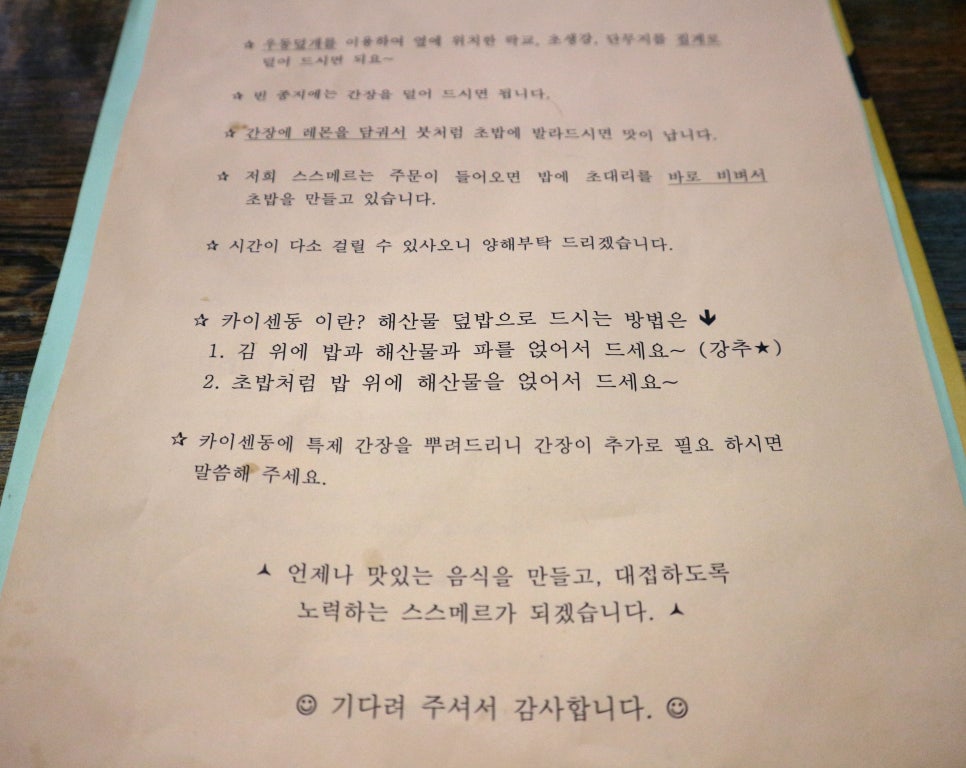 ☆ 우동덮개를 이용하여 옆에 위치한 락교, 초생강, 단무지를 집게로
덜어 드시면 되요~
☆ 빈 종지에는 간장을 덜어 드시면 됩니다.
☆ 간장에 레몬을 담궈서 붓처럼 초밥에 발라드시면 맛이 납니다.
☆ 저희 스스메르는 주문이 들어오면 밥에 초대리를 바로 비벼서
초밥을 만들고 있습니다.
☆ 시간이 다소 걸릴 수 있사오니 양해부탁 드리겠습니다.
☆ 카이센동 이란? 해산물 덮밥으로 드시는 방법은 🡻
1. 김 위에 밥과 해산물과 파를 얹어서 드세요~ (강추★)
2. 초밥처럼 밥 위에 해산물을 얹어서 드세요~
☆ 카이센동에 특제 간장을 뿌려드리니 간장이 추가로 필요 하시면
말씀해 주세요.
언제나 맛있는 음식을 만들고, 대접하도록
노력하는 스스메르가 되겠습니다.
☺ 기다려 주셔서 감사합니다. ☺